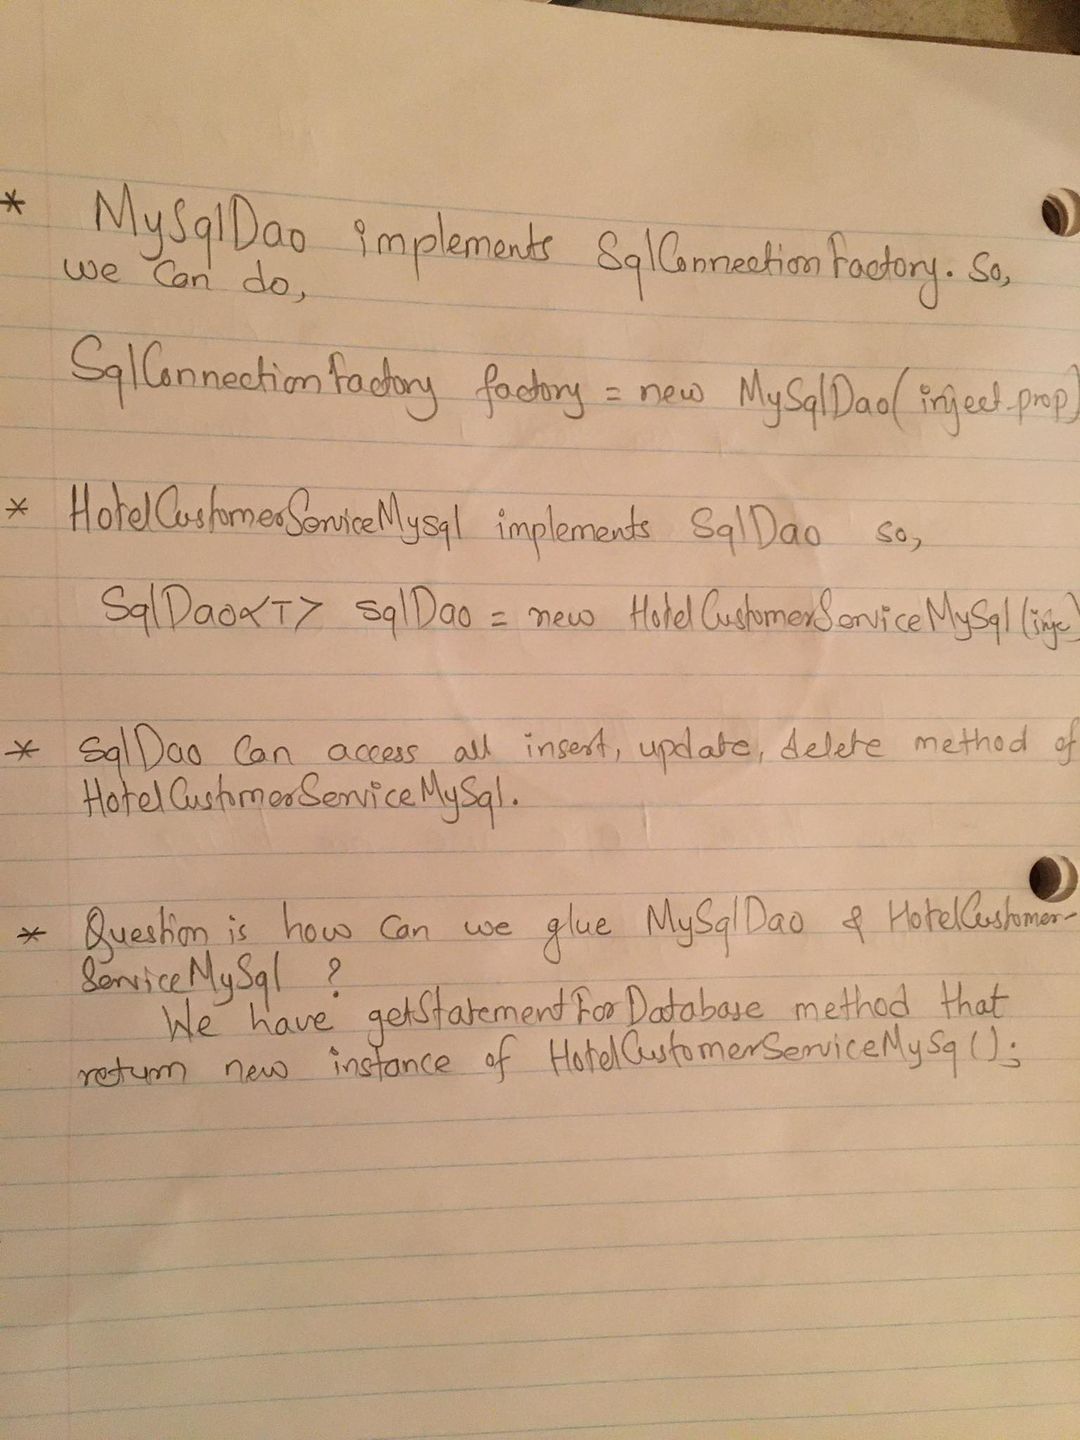 * MySqlDao implements SqlConnectionFactory. So,
we can do,
SqlConnectionFactory factory = new MySqlDao(inject-prop)
* HotelCustomerServiceMysql implements SqlDao so,
SqlDao<T> sqlDao = new HotelCustomerServiceMySql(inje)
* SqlDao can access all insert, update, delete method of
HotelCustomerServiceMySql.
* Question is how can we glue MySqlDao & HotelCustomer-
ServiceMySql ?
We have getStatementForDatabase method that
return new instance of HotelCustomerServiceMySq();